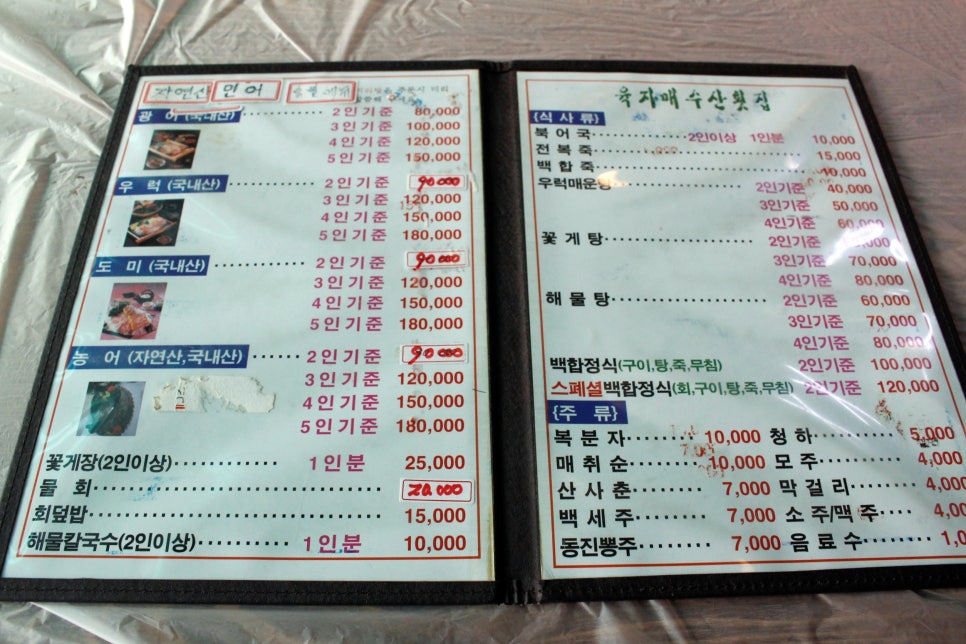 자연산 민어
광 어 (국내산) 2인기준 80,000
3인기준 100,000
4인기준 120,000
5인기준 150,000
우 럭 (국내산) 2인기준 90.000
3인기준 120,000
4인기준 150,000
5인기준 180,000
도 미 (국내산) 2인기준 90.000
3인기준 120,000
4인기준 150,000
5인기준 180,000
농 어 (자연산,국내산) 2인기준 90.000
3인기준 120,000
4인기준 150,000
5인기준 180,000
꽃게장(2인이상) 1인분 25,000
물 회 20.000
회덮밥 15,000
해물칼국수(2인이상) 1인분 10,000
육자매수산횟집
{식사류}
북어국 2인이상 1인분 10,000
전복죽 15,000
백합죽 10,000
우럭매운탕 2인기준 40,000
3인기준 50,000
4인기준 60,000
꽃게탕 2인기준
3인기준 70,000
4인기준 80,000
해물탕 2인기준 60,000
3인기준 70,000
4인기준 80,000
백합정식(구이,탕,죽,무침) 2인기준 100,000
스폐셜백합정식(회,구이,탕,죽,무침) 2인기준 120,000
{주 류}
복분자 10,000 청하 5,000
매취순 10,000 모주 4,000
산사춘 7,000 막걸리 4,000
백세주 7,000 소주/맥주
동진뽕주 7,000 음료수